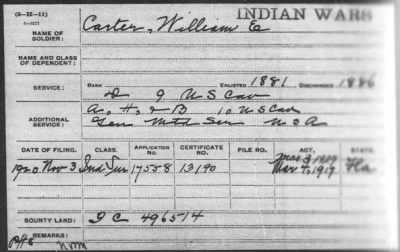 (3-H-11)
INDIAN WARS
NAME OF SOLDIER: Carter, William E
NAME AND CLASS OF DEPENDENT:
SERVICE: RANK ENLISTED 1881 DISCHARGED 1886
D 9 U S Cav
ADDITIONAL SERVICE: A, H, & B 10 U S Cav
Gen Mtd Ser U S A
DATE OF FILING. CLASS. APPLICATION NO. CERTIFICATE NO. FILE NO. ACT. STATE.
1920 Nov 3 Ind Sur 17558 13190 Mar 4, 1917 Fla
BOUNTY LAND: I C 496514
REMARKS: